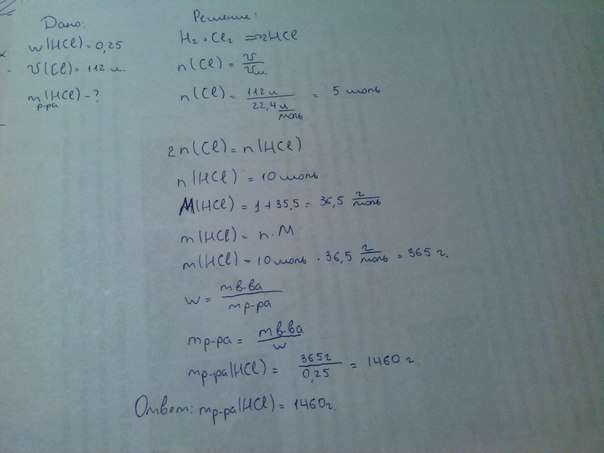 Дано:
w(HCl) = 0,25
V(Cl) = 112 л.
m(HCl) - ?
р-ра
Решение:
H₂ + Cl₂ = 2HCl
n(Cl) = V/Vм
n(Cl) = 112 л / 22,4 л/моль = 5 моль
2n(Cl) = n(HCl)
n(HCl) = 10 моль
M(HCl) = 1 + 35,5 = 36,5 г/моль
m(HCl) = n · M
m(HCl) = 10 моль · 36,5 г/моль = 365 г.
w = mв-ва / mр-ра
mр-ра = mв-ва / w
mр-ра(HCl) = 365г / 0,25 = 1460 г.
Ответ: mр-ра(HCl) = 1460г.